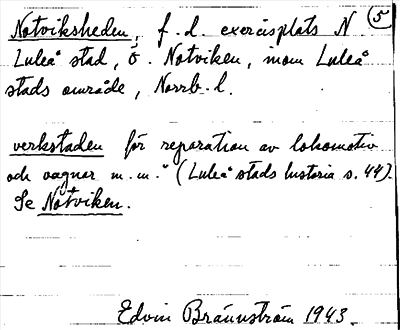 Notviksheden, f.d. exercisplats N (5)
Luleå stad, ö. Notviken, inom Luleå
stads område, Norrb. l.
verkstaden för reparation av lokomotiv
och vagnar m.m." (Luleå stads historia s. 44).
Se Notviken.
Edvin Brännström 1943.